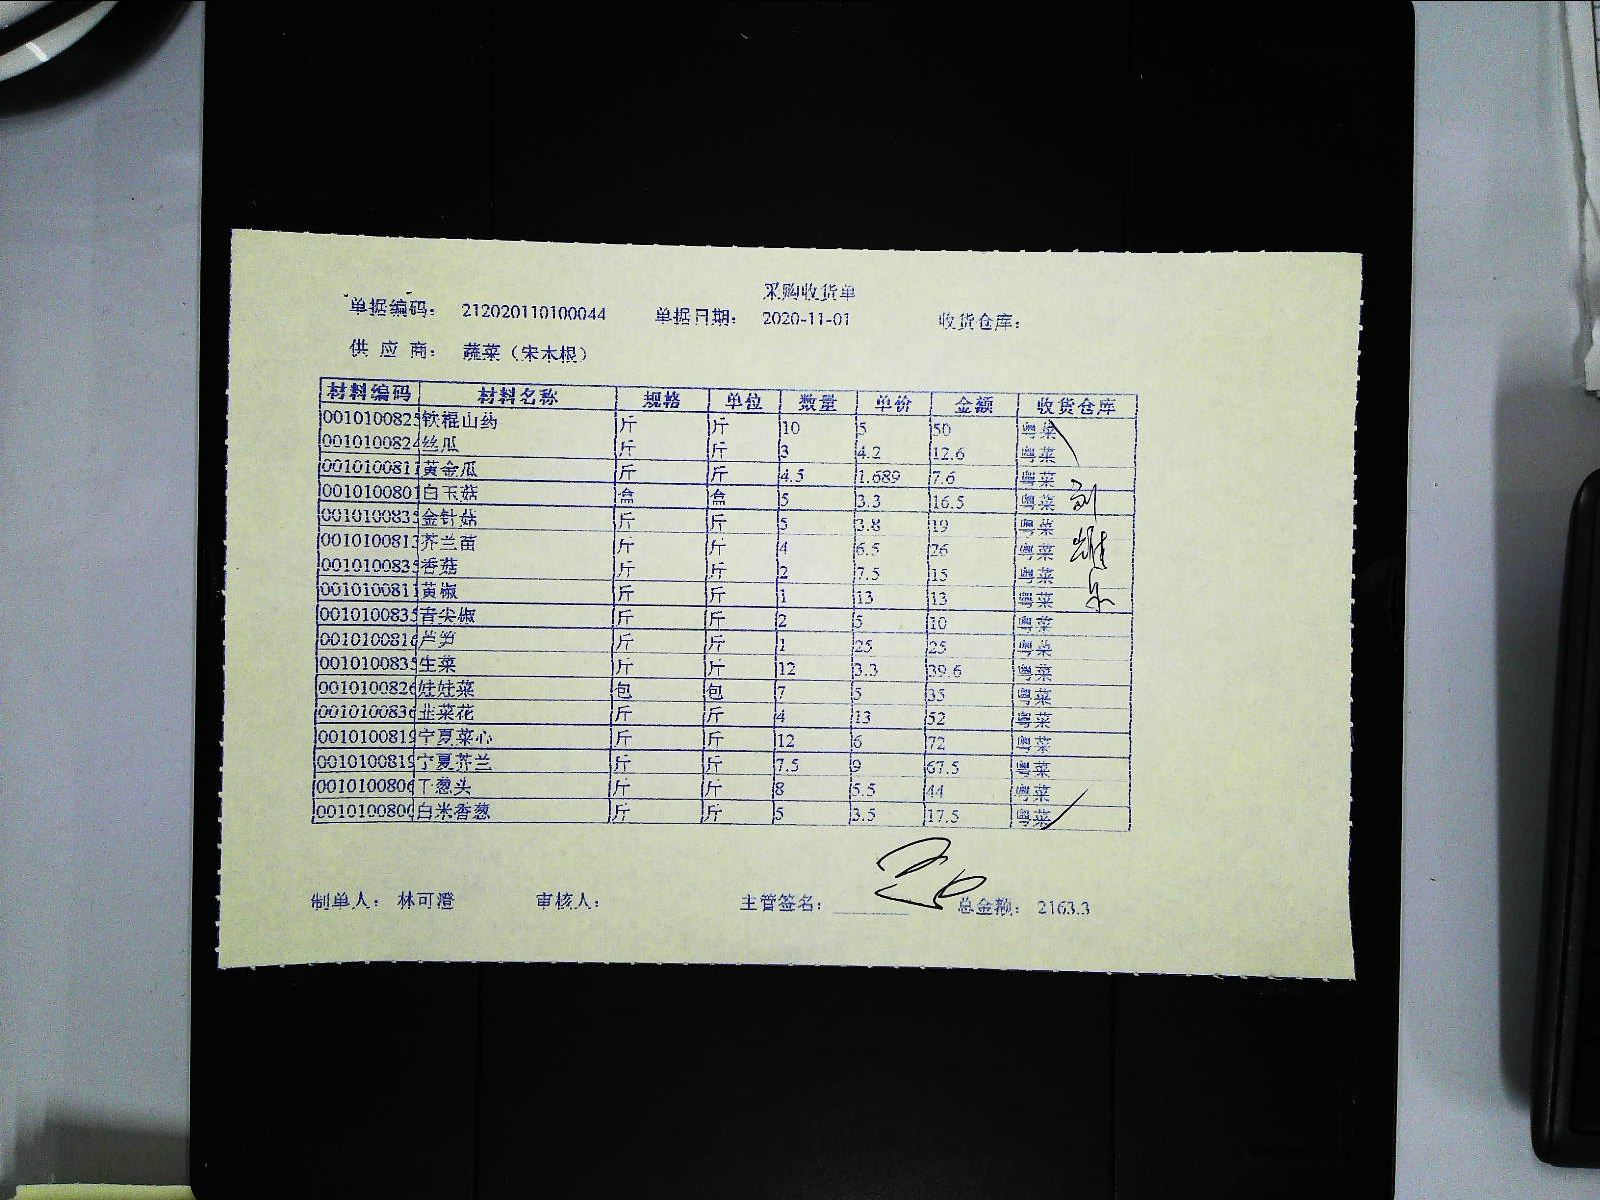 采购收货单
单据编码： 212020110100044 单据日期： 2020-11-01 收货仓库：
供 应 商： 蔬菜（宋木根）
材料编码 材料名称 规格 单位 数量 单价 金额 收货仓库
0010100825 铁棍山药 斤 斤 10 5 50 粤菜
0010100824 丝瓜 斤 斤 3 4.2 12.6 粤菜
0010100811 黄金瓜 斤 斤 4.5 1.689 7.6 粤菜
0010100801 白玉菇 盒 盒 5 3.3 16.5 粤菜
0010100835 金针菇 斤 斤 5 3.8 19 粤菜
0010100813 芥兰苗 斤 斤 4 6.5 26 粤菜
0010100835 香菇 斤 斤 2 7.5 15 粤菜
0010100811 黄椒 斤 斤 1 13 13 粤菜
0010100835 青尖椒 斤 斤 2 5 10 粤菜
0010100816 芦笋 斤 斤 1 25 25 粤菜
0010100835 生菜 斤 斤 12 3.3 39.6 粤菜
0010100826 娃娃菜 包 包 7 5 35 粤菜
0010100836 韭菜花 斤 斤 4 13 52 粤菜
0010100819 宁夏菜心 斤 斤 12 6 72 粤菜
0010100819 宁夏芥兰 斤 斤 7.5 9 67.5 粤菜
0010100806 干葱头 斤 斤 8 5.5 44 粤菜
0010100806 白米香葱 斤 斤 5 3.5 17.5 粤菜
制单人： 林可澄 审核人： 主管签名： 总金额： 2163.3